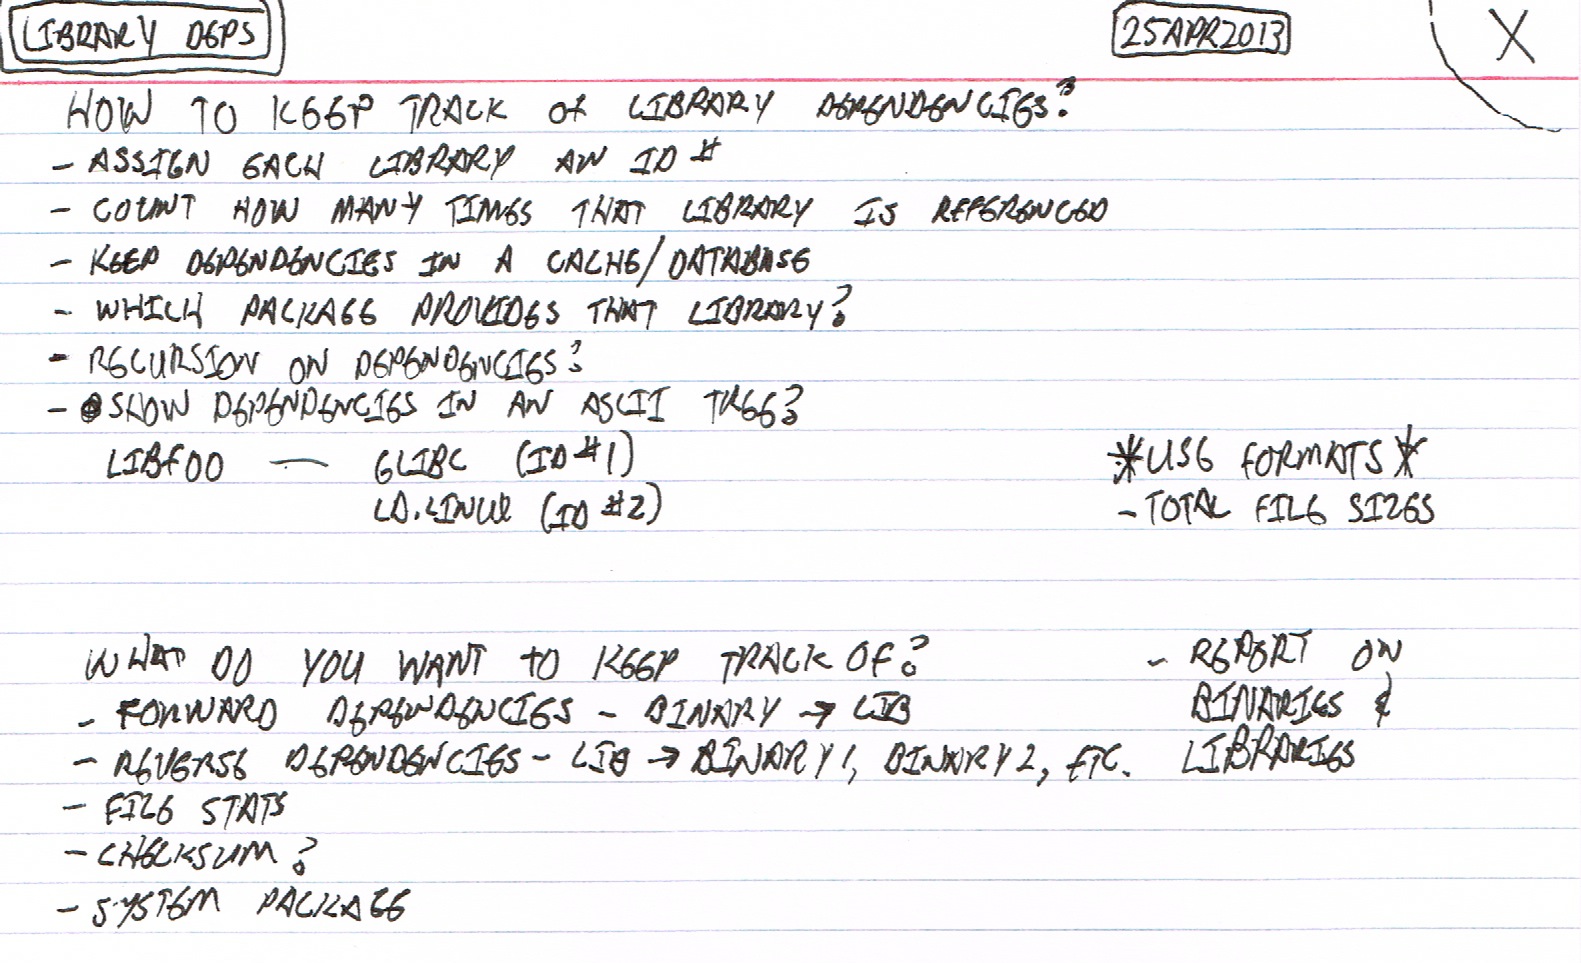 LIBRARY DEPS
25APR2013
X
HOW TO KEEP TRACK OF LIBRARY DEPENDENCIES?
- ASSIGN EACH LIBRARY AN ID #
- COUNT HOW MANY TIMES THAT LIBRARY IS REFERENCED
- KEEP DEPENDENCIES IN A CACHE/DATABASE
- WHICH PACKAGE PROVIDES THAT LIBRARY?
- RECURSION ON DEPENDENCIES?
- SHOW DEPENDENCIES IN AN ASCII TREE?
LIBFOO — GLIBC (ID #1)
LD.LINUX (ID #2)
*USE FORMATS*
- TOTAL FILE SIZES
WHAT DO YOU WANT TO KEEP TRACK OF?
- FORWARD DEPENDENCIES - BINARY → LIB
- REVERSE DEPENDENCIES - LIB → BINARY 1, BINARY 2, ETC.
- FILE STATS
- CHECKSUM?
- SYSTEM PACKAGE
- REPORT ON
BINARIES &
LIBRARIES